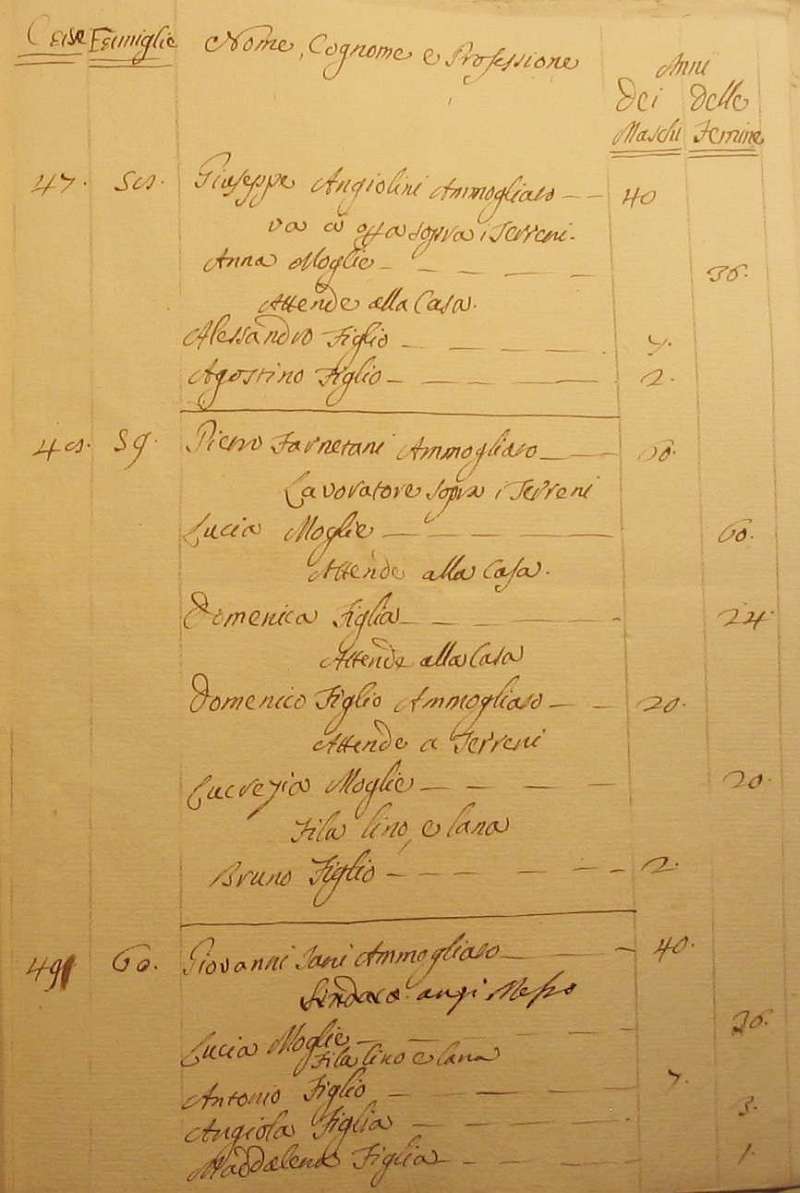 Case Famiglie Nome, Cognome e Professione Anni
dei delle
Maschi Femine
47. 58. Giuseppe Angiolini Ammogliato 40
va a opra sopra i Terreni.
Anna Moglie 36.
Attende alla Casa.
Alessandro Figlio 7.
Agostino Figlio 2.
48. 59. Pietro Farnetani Ammogliato 60.
Lavoratore sopra i Terreni
Lucia Moglie 60.
Attende alla Casa.
Domenica Figlia 24.
Attende alla Casa
Domenico Figlio Ammogliato 20.
Attende a Terreni
Lucrezia Moglie 20.
Fila lino, e lana
Bruno Figlio 2.
49 60. Giovanni Ammogliato 40.
anzi Messo
Lucia Moglie 36.
Fila lino e lana
Antonio Figlio 7.
Angiola Figlia 3.
Maddalena Figlia 1.